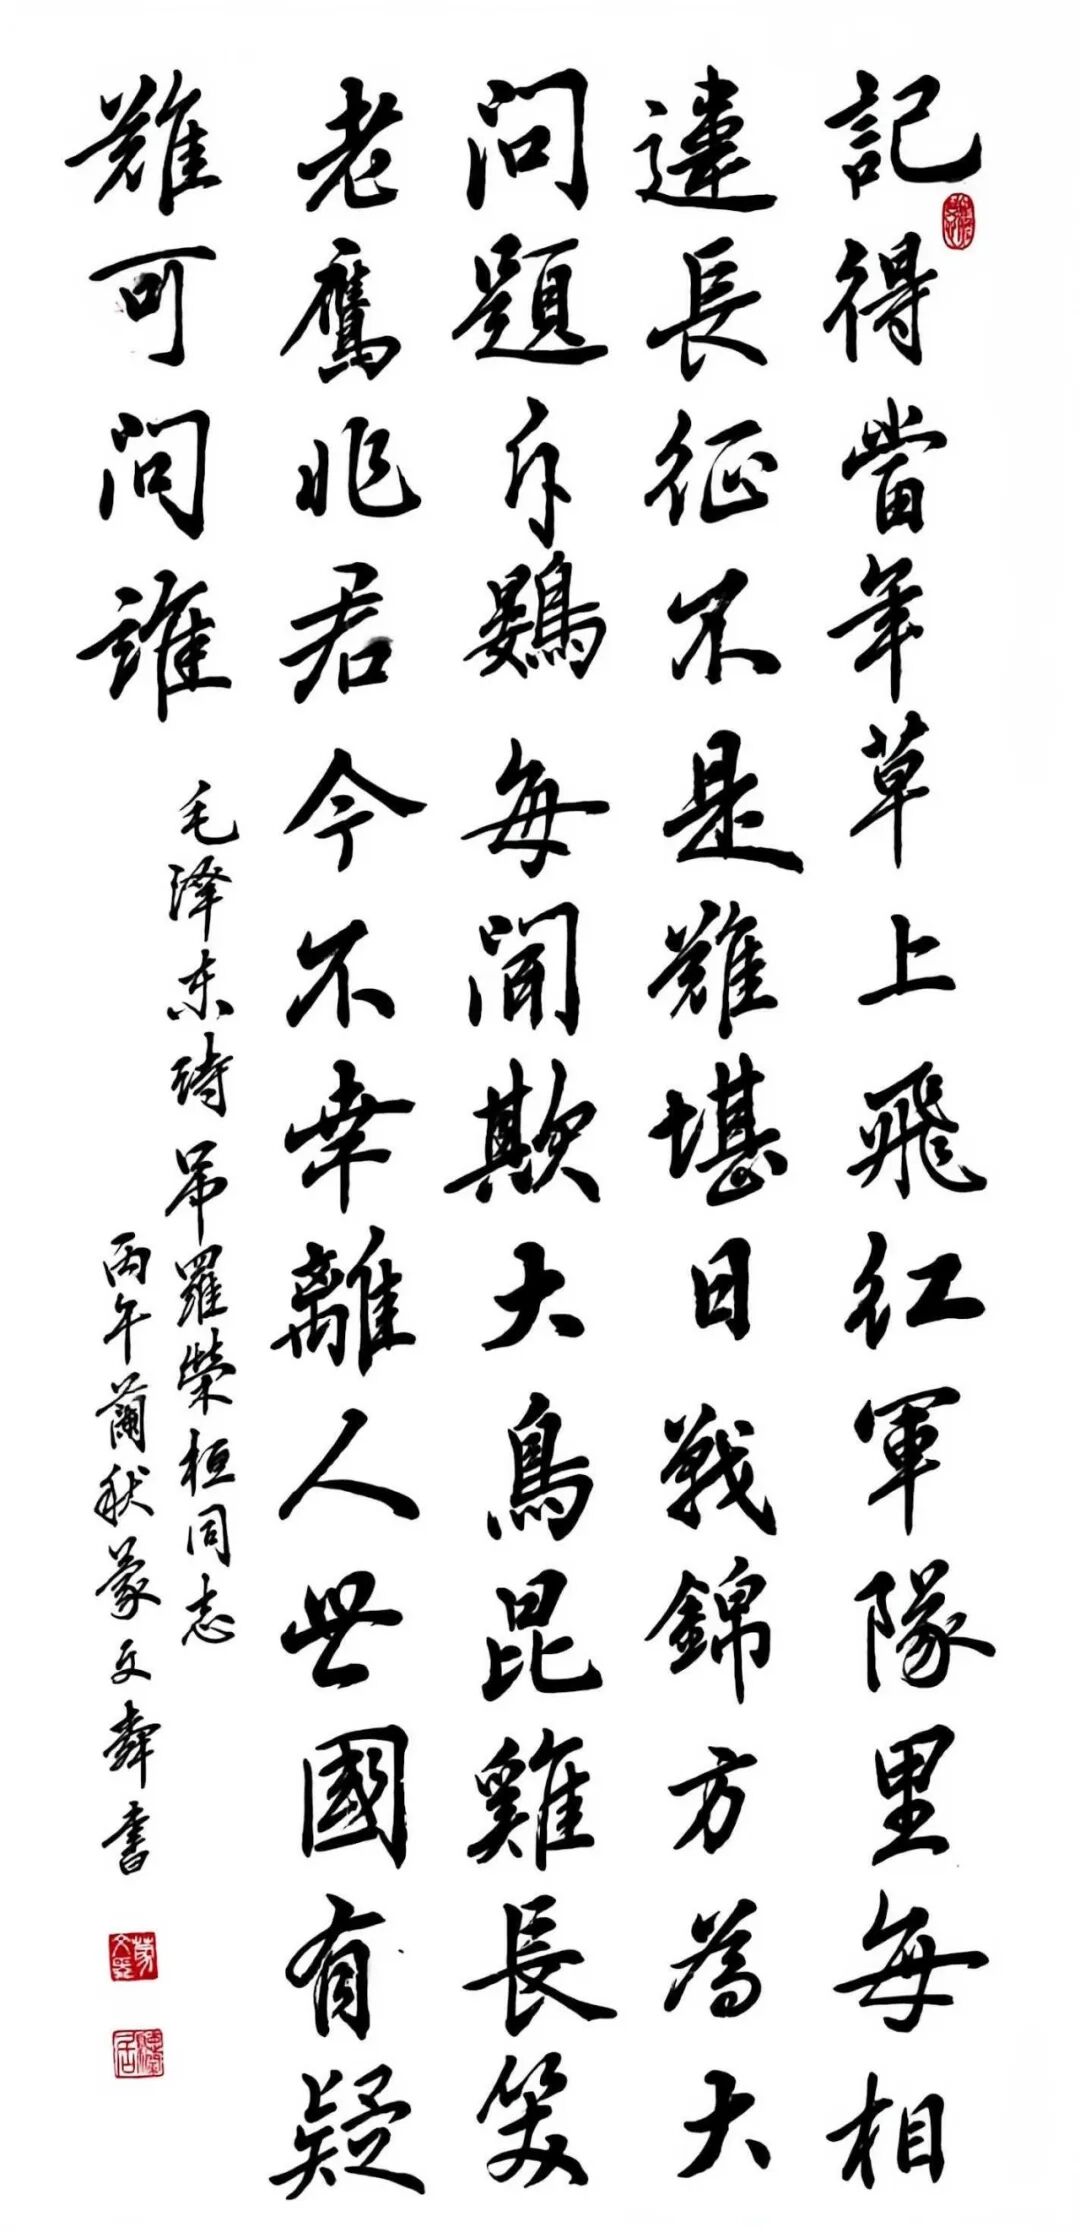 記得當年草上飛红軍隊里每相
違長征不是難堪日戰錦方為大
问題斥鷃每闻欺大鳥昆雞長笑
老鷹非君今不幸離人世國有疑
難可问誰
毛澤东詩吊羅榮桓同志
丙午蘭秋蒙文舜書